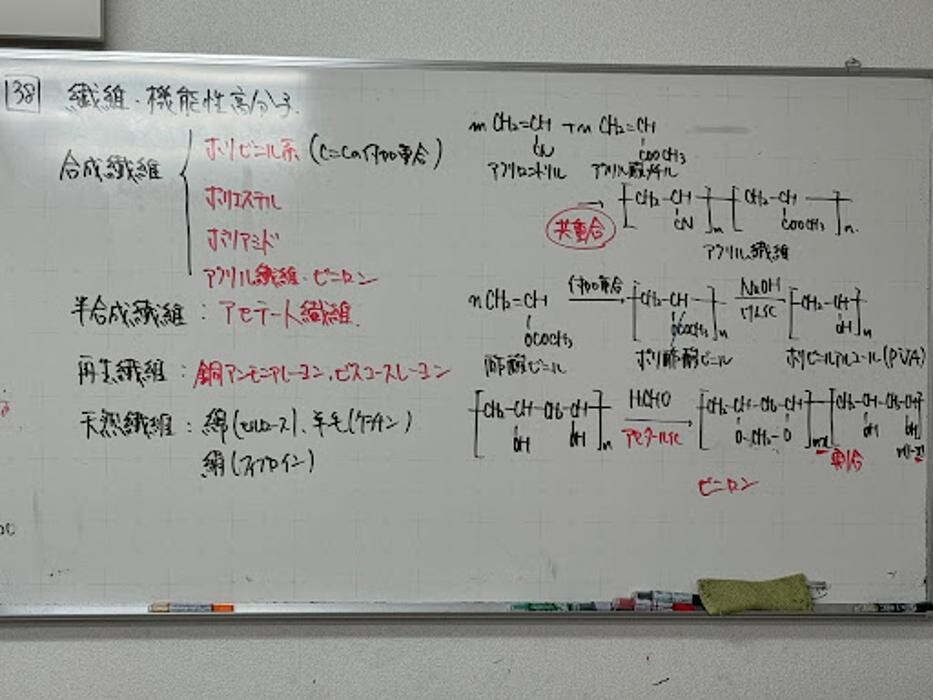 38 繊維・機能性高分子.
合成繊維
ポリビニル系 (C=Cの付加重合)
ポリエステル
ポリアミド
アクリル繊維・ビニロン
半合成繊維：アセテート繊維.
再生繊維：銅アンモニアレーヨン、ビスコースレーヨン
天然繊維：綿(セルロース)、羊毛(ケラチン)
絹(フィブロイン)
m CH2=CH + n CH2=CH
CN COOCH3
アクリロニトリル アクリル酸メチル
→ [CH2-CH]m [CH2-CH]n
CN COOCH3
共重合
アクリル繊維
nCH2=CH 付加重合 → [CH2-CH]n NaOH けん化 → [CH2-CH]n
OCOCH3 OCOCH3 OH
酢酸ビニル ポリ酢酸ビニル ポリビニルアルコール(PVA)
[CH2-CH-CH2-CH]n HCHO → [CH2-CH-CH2-CH] [CH2-CH-CH2-CH]
OH OH アセタール化 O-CH2-O OH OH
割合
ビニロン